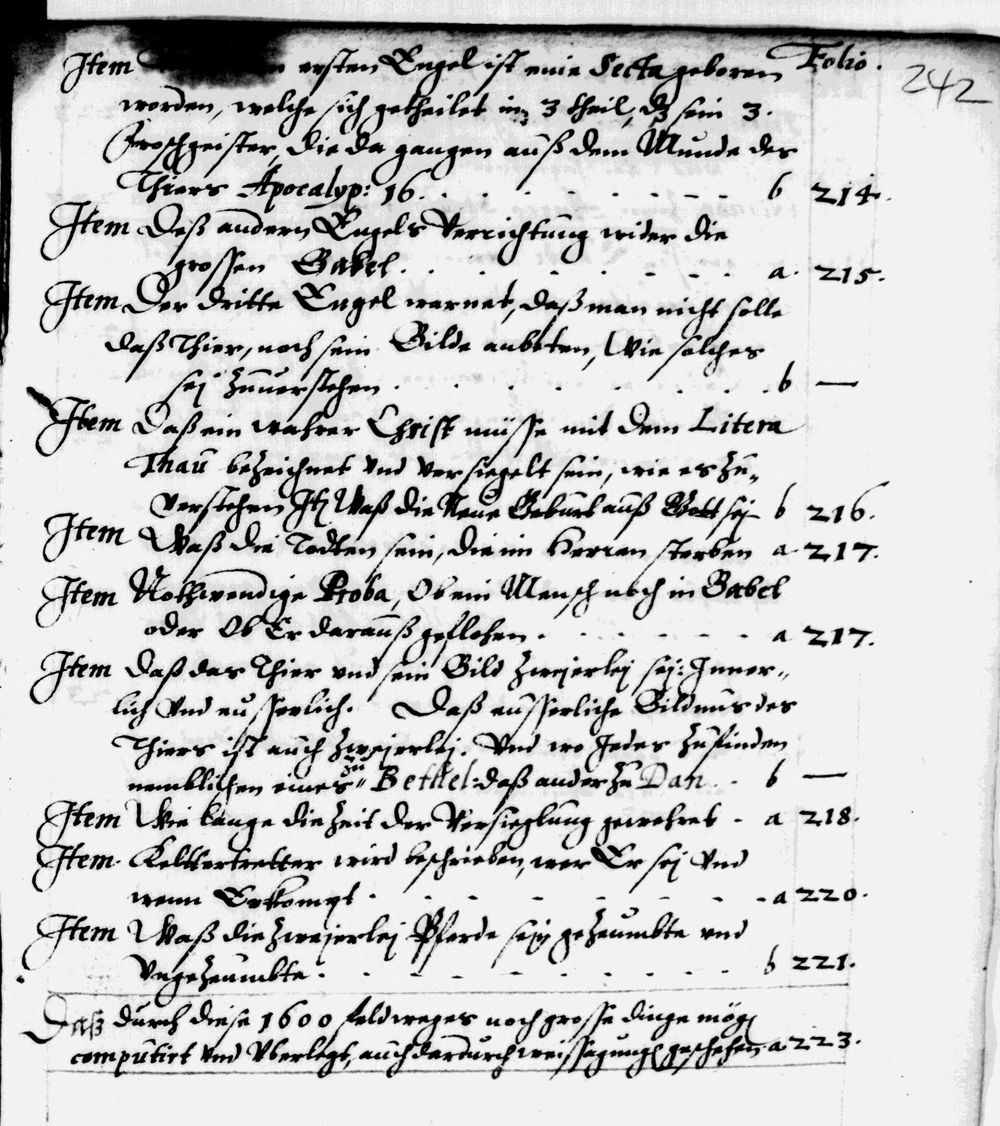 Item ersten Engel ist eine Secta geboren Folio. 242
worden, welche sich getheilet in 3 theil, dz sein 3.
Froschgeister, die da gangen auß dem Munde des
Thiers Apocalyp: 16. . . . . . . . b 214.
Item Deß andern Engels Verrichtung wider die
grossen Babel. . . . . . . . a. 215.
Item Der dritte Engel warnet, daß man nicht solle
daß Thier, noch sein Bilde anbeten, Wie solches
sej Zuuerstehen . . . . . . . . b —
Item Daß ein wahrer Christ müsse mit dem Litera
Thau bezeichnet vnd versiegelt sein, wie es zu„
verstehen It Waß die Neue Geburt auß Gott sej b 216.
Item Waß die Todten sein, die im Herren sterben a 217.
Item Nothwendige Proba, Ob ein Mensch noch in Babel
oder Ob Er darauß geflohen . . . . . . . a 217.
Item Daß das Thier vnd sein Bild Zwejerlej sej: Inner„
lich Vnd eusserlich. Daß eusserliche Bildnus des
Thiers ist auch Zwejerlej. Vnd wo Jedes Zufinden
nemblichen eines zu Bethel: daß ander Zu Dan . . b —
Item Wie lange die Zeit der Versieglung gewehret . a 218.
Item. Keltertretter wird beschrieben, wer Er sej Vnd
wenn Er kompt . . . . . . . . a 220.
Item Waß die Zwejerlej Pferde sein gezeumbte vnd
Vngezeumbte . . . . . . . . b 221.
Daß durch diese 1600 feldweges noch grosse dinge mög
computirt Vnd Vberlegt, auch dardurch weissagung geschehen a 223.